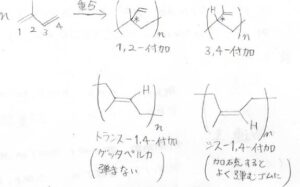 n 1 2 3 4 重合 ( * )n ( H * )n
1,2-付加 3,4-付加
( H )n ( H )n
トランス-1,4-付加 シス-1,4-付加
(グッタペルカ (加硫すると
弾まない) よく弾むゴムに)